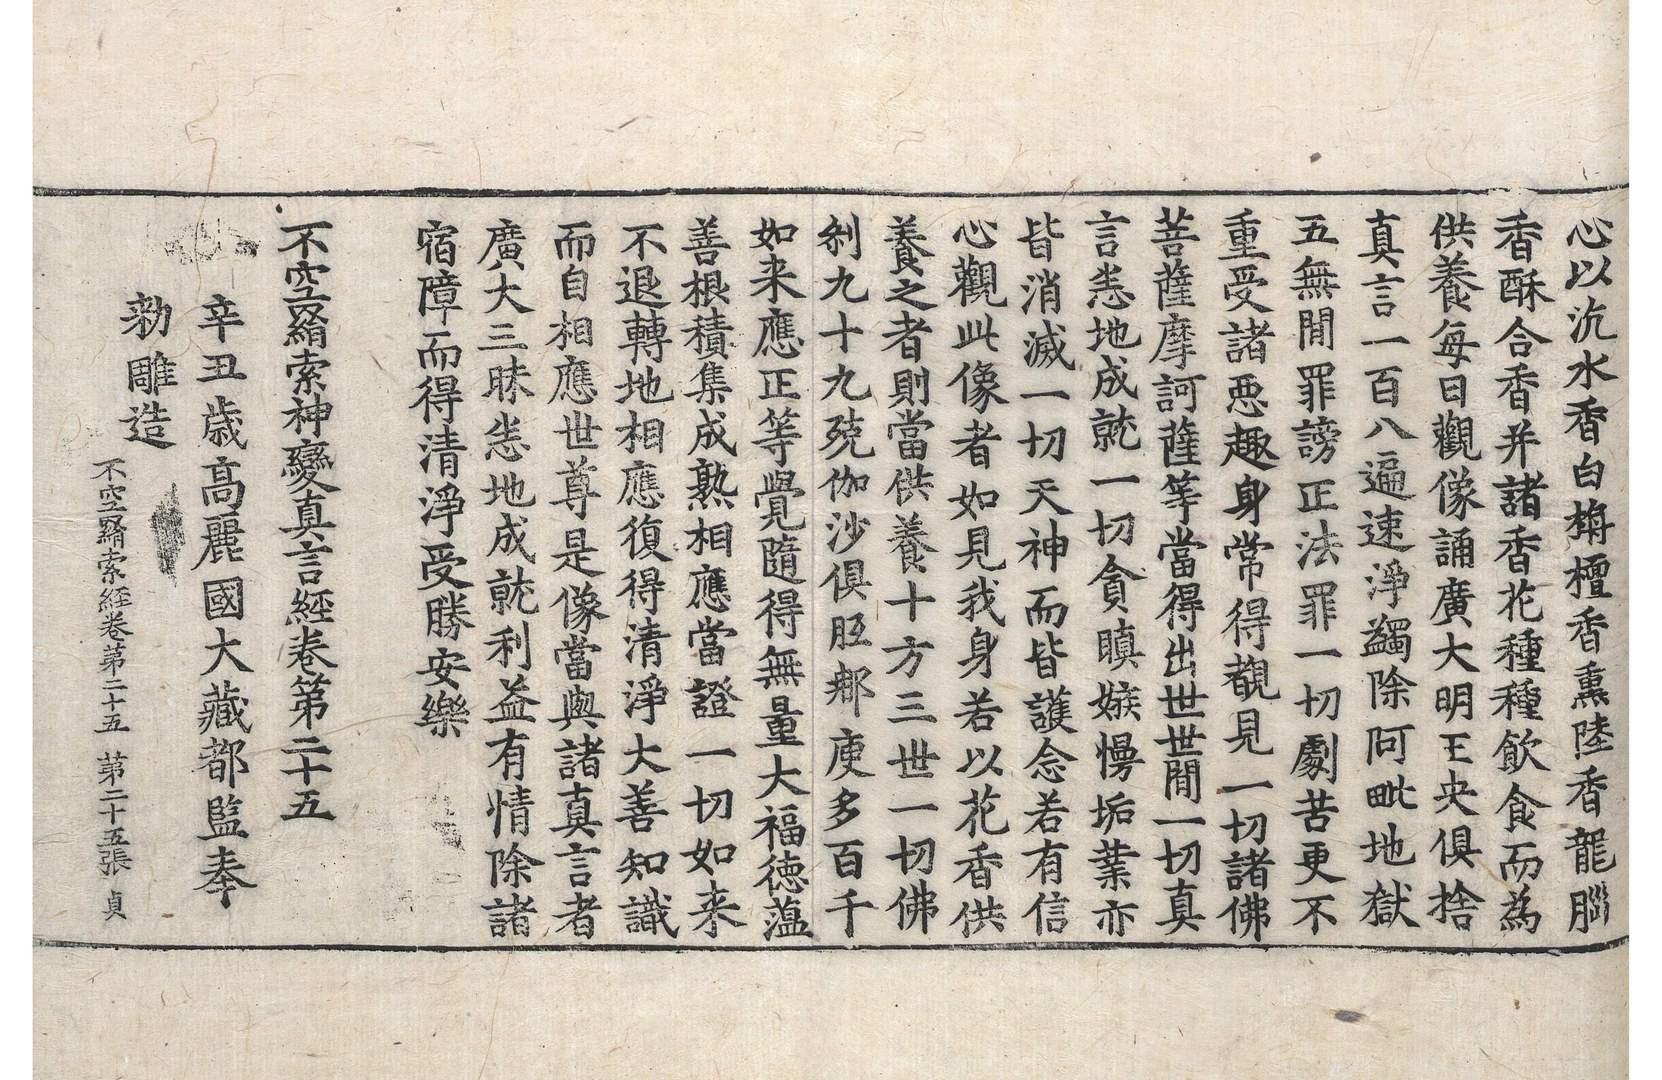 心以沉水香白栴檀香熏陸香龍腦
香酥合香并諸香花種種飲食而為
供養每日觀像誦廣大明王央俱捨
真言一百八遍速淨蠲除阿毗地獄
五無間罪謗正法罪一切劇苦更不
重受諸惡趣身常得覩見一切諸佛
菩薩摩訶薩等當得出世世間一切真
言悉地成就一切貪瞋嫉慢垢業亦
皆消滅一切天神而皆護念若有信
心觀此像者如見我身若以花香供
養之者則當供養十方三世一切佛
剎九十九殑伽沙俱胝那庾多百千
如来應正等覺隨得無量大福德蘊
善根積集成熟相應當證一切如来
不退轉地相應復得清淨大善知識
而自相應世尊是像當與諸真言者
廣大三昧悉地成就利益有情除諸
宿障而得清淨受勝安樂
不空羂索神變真言經卷第二十五
辛丑歲高麗國大藏都監奉
勅雕造
不空羂索經卷第二十五 第二十五張 貞